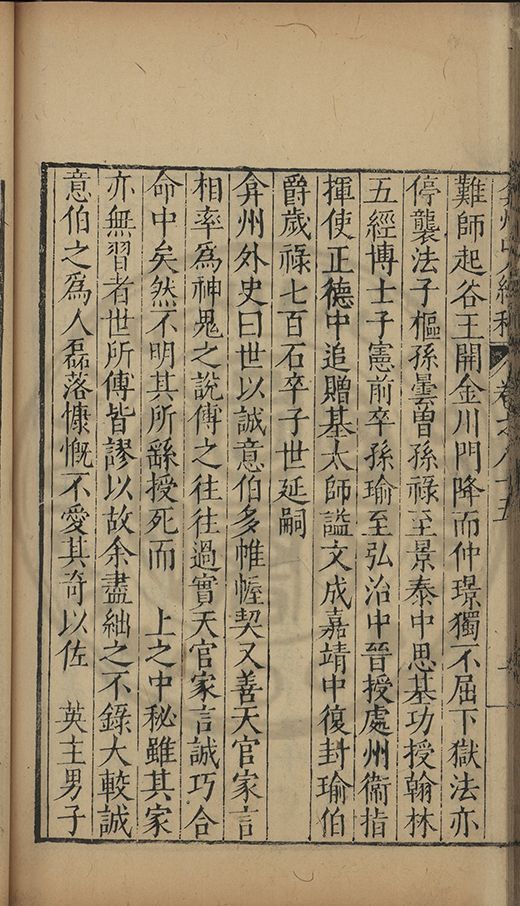 弇州山人續稿 卷之八十五
難師起谷王開金川門降而仲璟獨不屈下獄法亦
停襲法子樞孫曇曾孫祿至景泰中思基功授翰林
五經博士子憲前卒孫瑜至弘治中晉授處州衞指
揮使正德中追贈基太師謚文成嘉靖中復封瑜伯
爵歲祿七百石卒子世延嗣
弇州外史曰世以誠意伯多帷幄契又善天官家言
相率爲神鬼之說傳之往往過實天官家言誠巧合
命中矣然不明其所繇授死而 上之中秘雖其家
亦無習者世所傳皆謬以故余盡絀之不錄大較誠
意伯之爲人磊落慷慨不愛其奇以佐 英主男子